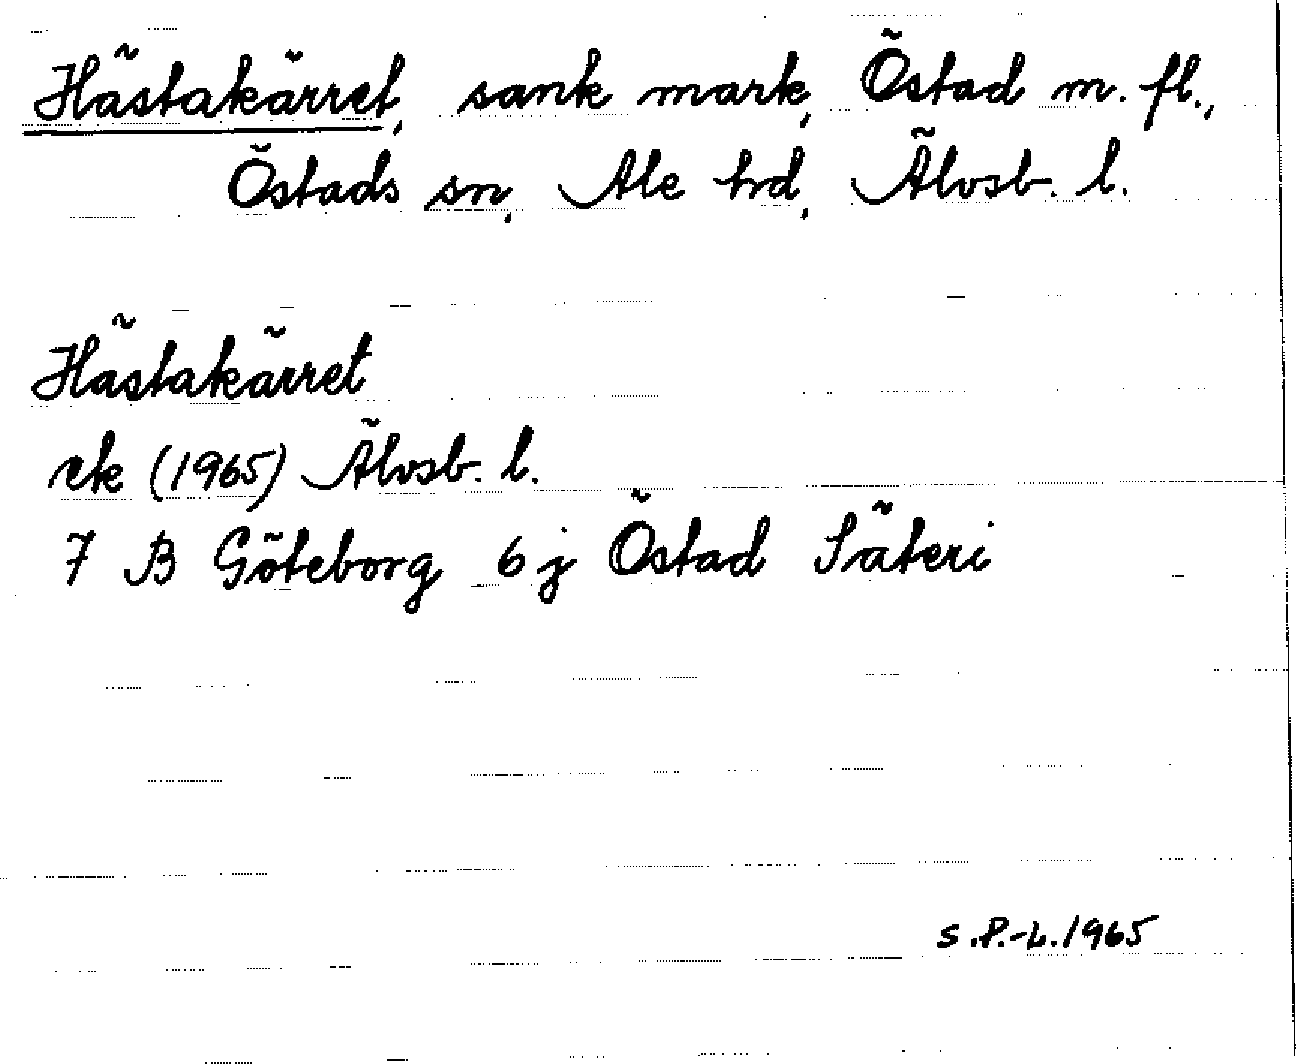 Hästakärret, sank mark, Östad m. fl.,
Östads sn, Ale hrd, Älvsb. l.
Hästakärret
ek (1965) Älvsb. l.
7 B Göteborg 6 j Östad Säteri
S.P.-L.1965